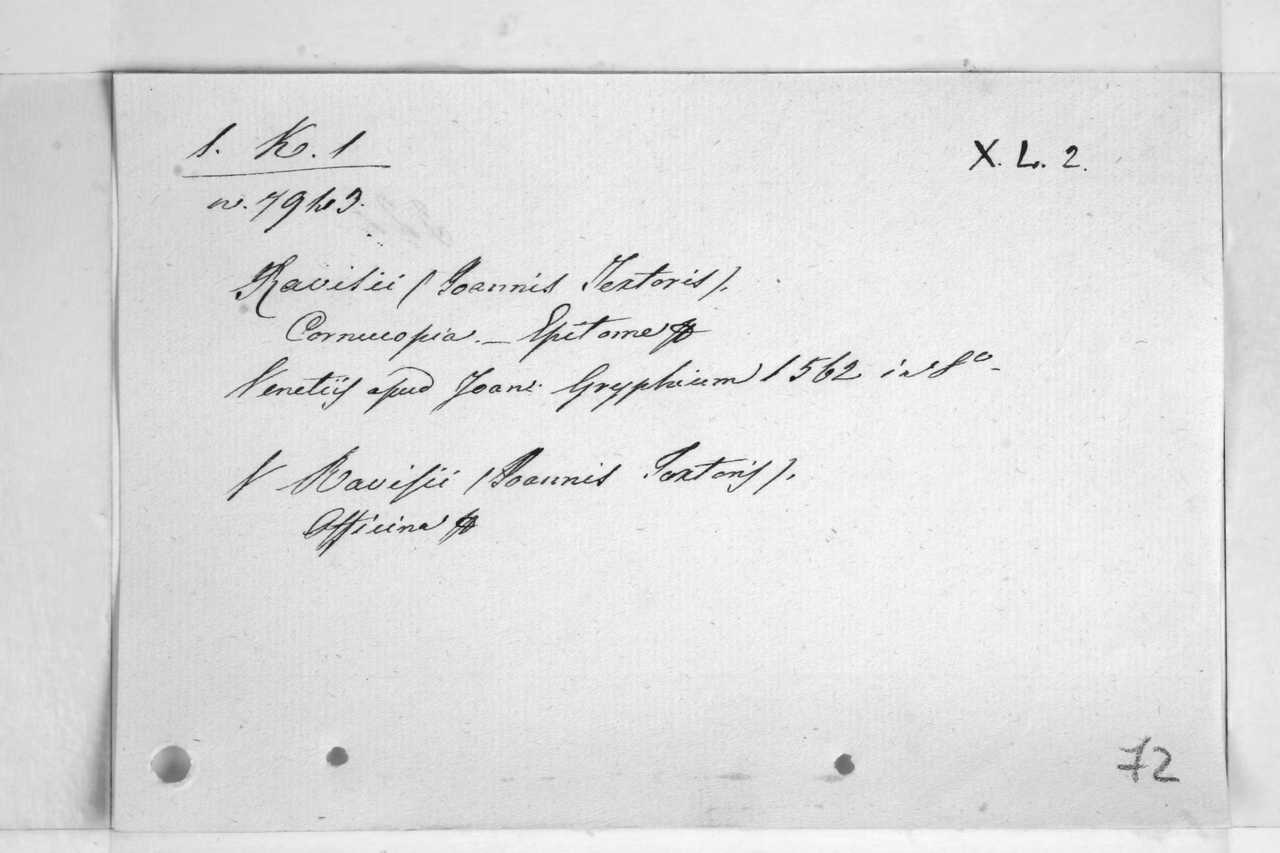 1. K. 1
X. L. 2.
n. 7943.
Ravisii (Joannis Textoris).
Cornucopia. — Epitome
Venetijs apud Joan: Gryphium 1562 in 8º
V Ravisii (Joannis Textoris).
Officina
72